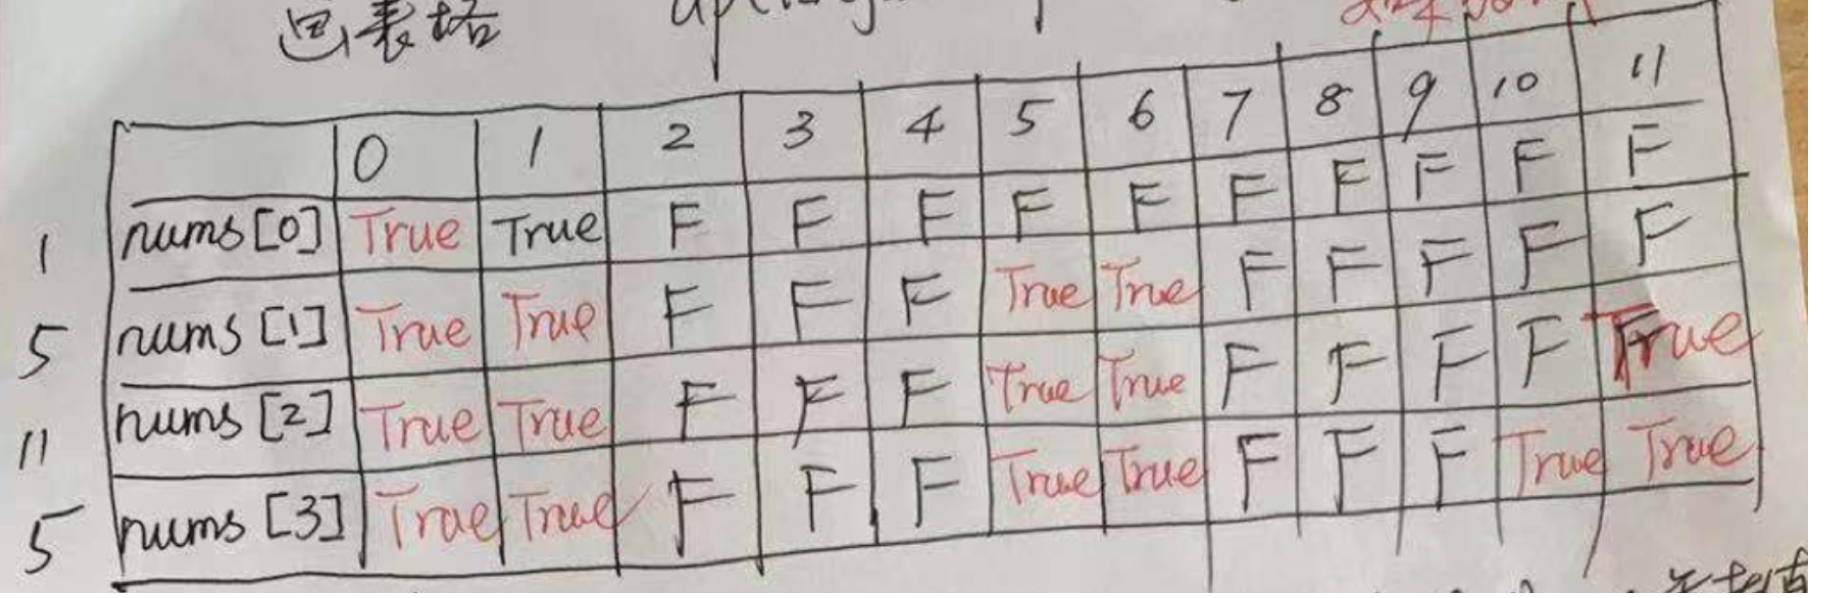 画表格
0 1 2 3 4 5 6 7 8 9 10 11
1 nums[0] True True F F F F F F F F F F
5 nums[1] True True F F F True True F F F F F
11 nums[2] True True F F F True True F F F F True
5 nums[3] True True F F F True True F F F True True